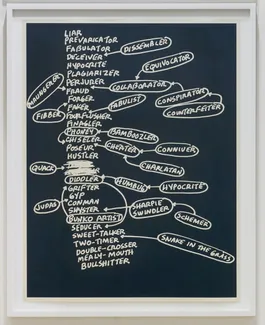 LIAR
PREVARICATOR
FABULATOR
DISSEMBLER
DECEIVER
HYPOCRITE
EQUIVOCATOR
PLAGIARIZER
PERJURER
COLLABORATOR
MALINGERER
FRAUD
FORGER
CONSPIRATOR
FAKER
FABULIST
COUNTERFEITER
FIBBER
FOUR-FLUSHER
FINAGLER
PHONEY
BAMBOOZLER
CHISELER
CHEATER
CONNIVER
POSEUR
HUSTLER
CHARLATAN
QUACK
DIDDLER
HUMBUG
HYPOCRITE
GRIFTER
GYP
JUDAS
CONMAN
SHARPIE
SHYSTER
SWINDLER
SCHEMER
BUNKO ARTIST
SEDUCER
SWEET-TALKER
SNAKE IN THE GRASS
TWO-TIMER
DOUBLE-CROSSER
MEALY-MOUTH
BULLSHITTER